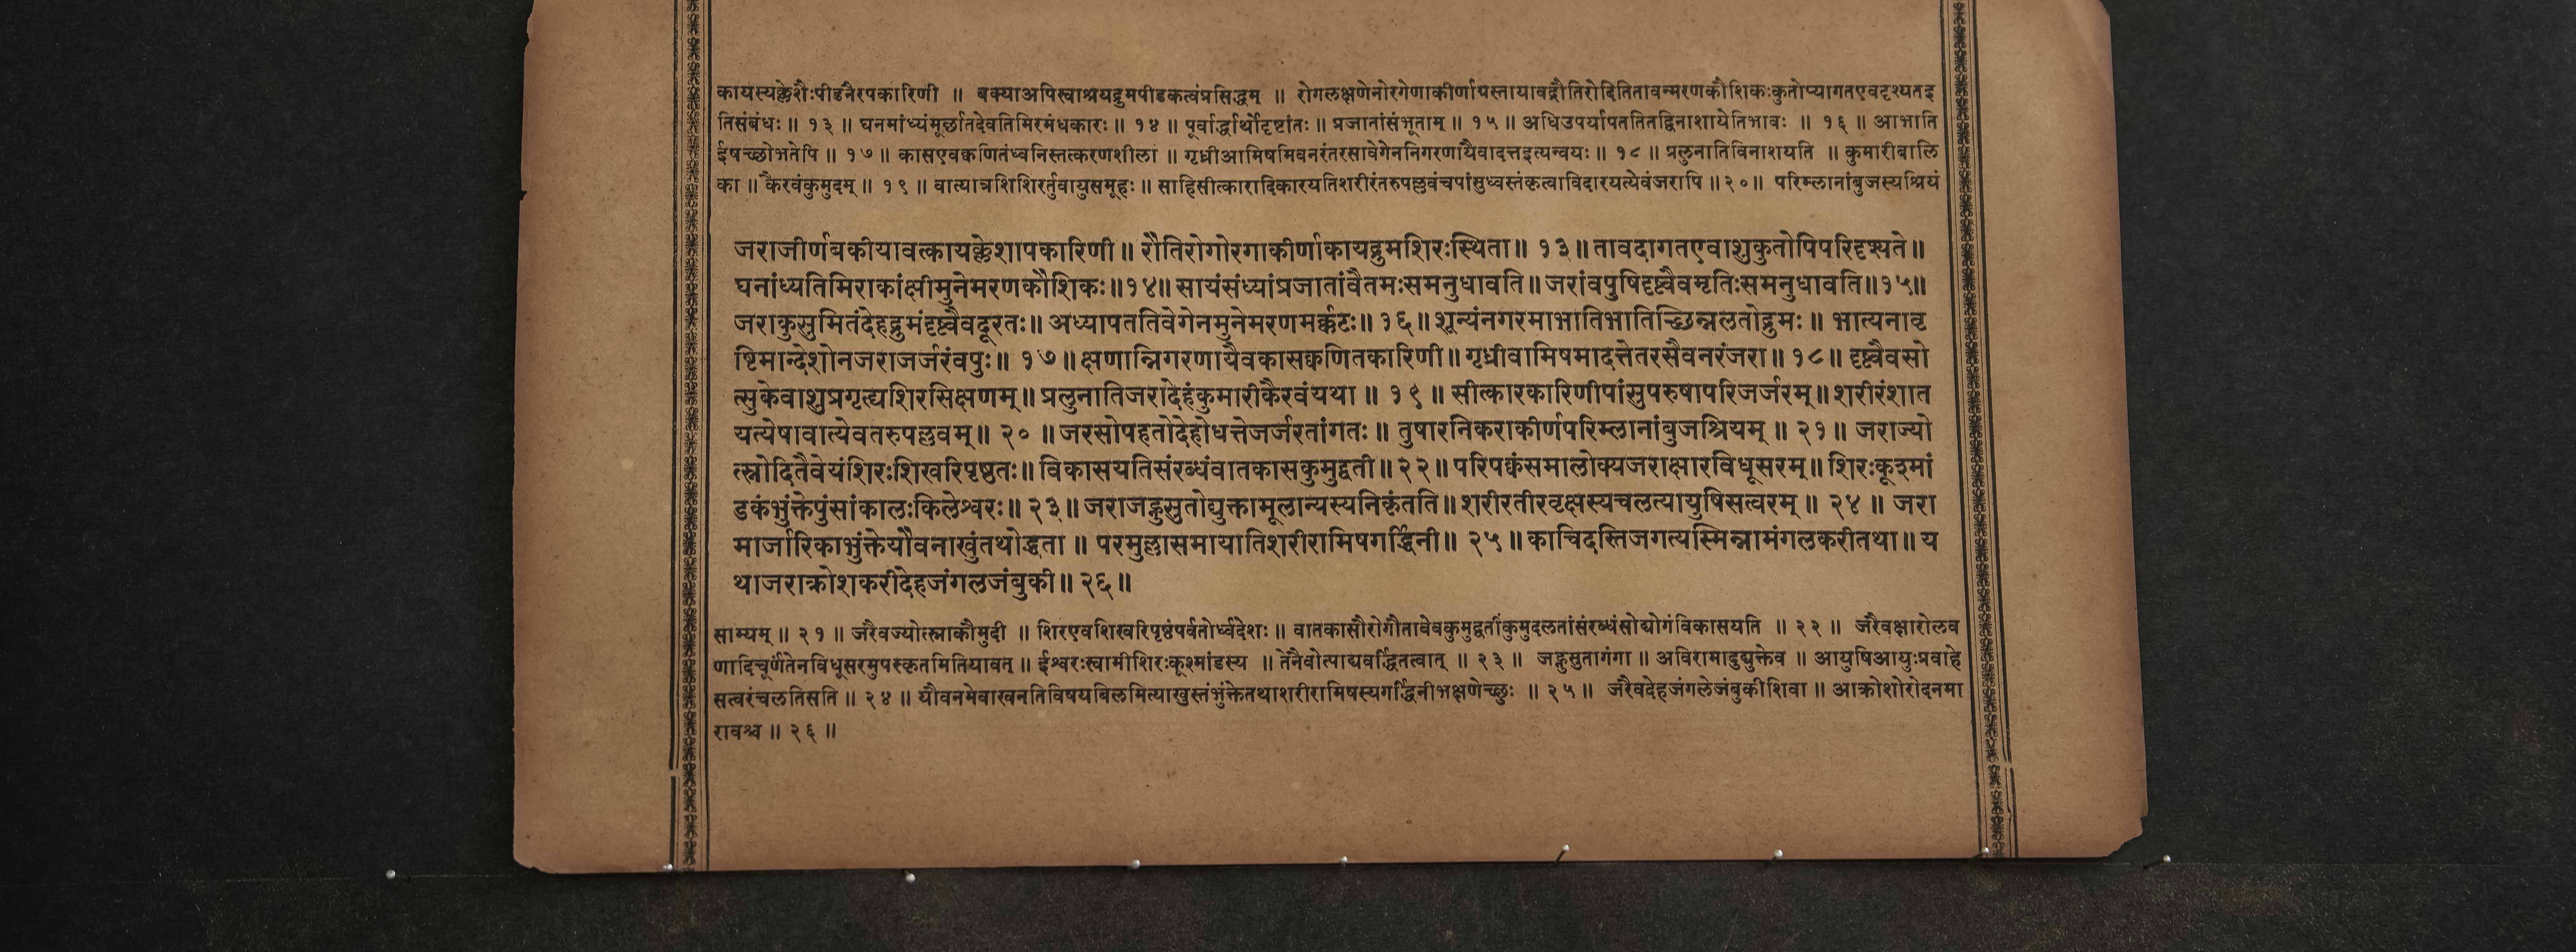 कायस्यक्लेशैःपीडनैरपकारिणी ॥ बक्याअपिस्वाश्रयद्रुमपीडकत्वंप्रसिद्धम् ॥ रोगलक्षणेनोरगेणाकीर्णाग्रस्तायावद्रौतिरोदितितावन्मरणकौशिकःकुतोप्यागतएवदृश्यतइ
तिसंबंधः ॥ १३ ॥ घनमांध्यंमूर्छातदेवतिमिरमंधकारः ॥ १४ ॥ पूर्वार्द्धार्थोदृष्टांतः ॥ प्रजातांसंभूताम् ॥ १५ ॥ अधिउपर्यापततितद्विनाशायेतिभावः ॥ १६ ॥ आभाति
ईषच्छोभतेपि ॥ १७ ॥ कासएवक्वणितंध्वनिस्तत्करणशीला ॥ गृध्रीआमिषमिवनरंतरसावेगेननिगरणायैवादत्तइत्यन्वयः ॥ १८ ॥ प्रलुनातिविनाशयति ॥ कुमारीबालि
का ॥ कैरवंकुमुदम् ॥ १९ ॥ वात्यात्रशिशिरर्तुवायुसमूहः ॥ साहिसीत्कारादिकारयतिशरीरंतरुपल्लवंचपांसुध्वस्तंकृत्वाविदारयत्येवंजरापि ॥२०॥ परिम्लानांबुजस्यश्रियं
जराजीर्णबकीयावत्कायक्लेशापकारिणी ॥ रौतिरोगोरगाकीर्णाकायद्रुमशिरःस्थिता ॥ १३ ॥ तावदागतएवाशुकुतोपिपरिदृश्यते ॥
घनांध्यतिमिराकांक्षीमुनेमरणकौशिकः ॥१४॥ सायंसंध्यांप्रजातांवैतमःसमनुधावति ॥ जरांवपुषिदृष्ट्वैवमृतिःसमनुधावति ॥१५॥
जराकुसुमितंदेहद्रुमंदृष्ट्वैवदूरतः ॥ अध्यापततिवेगेनमुनेमरणमर्क्कटः ॥ १६ ॥ शून्यंनगरमाभातिभातिच्छिन्नलतोद्रुमः ॥ भात्यनावृ
ष्टिमान्देशोनजराजर्जरंवपुः ॥ १७ ॥ क्षणान्निगरणायैवकासक्वणितकारिणी ॥ गृध्रीवामिषमादत्तेतरसैवनरंजरा ॥ १८ ॥ दृष्ट्वैवसो
त्सुकेवाशुप्रगृह्यशिरसिक्षणम् ॥ प्रलुनातिजरादेहंकुमारीकैरवंयथा ॥ १९ ॥ सीत्कारकारिणीपांसुपरुषापरिजर्जरम् ॥ शरीरंशात
यत्येषावात्येवतरुपल्लवम् ॥ २० ॥ जरसोपहतोदेहोधत्तेजर्जरतांगतः ॥ तुषारनिकराकीर्णपरिम्लानांबुजश्रियम् ॥ २१ ॥ जराज्यो
त्स्नोदितैवेयंशिरःशिखरिपृष्ठतः ॥ विकासयतिसंरब्धंवातकासकुमुद्वती ॥ २२ ॥ परिपक्वंसमालोक्यजराक्षारविधूसरम् ॥ शिरःकूश्मां
डकंभुंक्तेपुंसांकालःकिलेश्वरः ॥ २३ ॥ जराजह्नुसुतोद्युक्तामूलान्यस्यनिकृंतति ॥ शरीरतीरवृक्षस्यचलत्यायुषिसत्वरम् ॥ २४ ॥ जरा
मार्जारिकाभुंक्तेयौवनाखुंतथोद्धता ॥ परमुल्लासमायातिशरीरामिषगर्द्धिनी ॥ २५ ॥ काचिदस्तिजगत्यस्मिन्नामंगलकरीतथा ॥ य
थाजराक्रोशकरीदेहजंगलजंबुकी ॥ २६ ॥
साम्यम् ॥ २१ ॥ जरैवज्योत्स्नाकौमुदी ॥ शिरएवशिखरिपृष्ठंपर्वतोर्ध्वदेशः ॥ वातकासौरोगौतावेवकुमुद्वतीकुमुदलतांसंरब्धंसोद्योगंविकासयति ॥ २२ ॥ जरैवक्षारोलव
णादिचूर्णंतेनविधूसरमुपस्कृतमितियावत् ॥ ईश्वरःस्वामीशिरःकूश्मांडस्य ॥ तेनैवोत्पाद्यवर्द्धितत्वात् ॥ २३ ॥ जह्नुसुतागंगा ॥ अविरामादुद्युक्तेव ॥ आयुषिआयुःप्रवाहे
सत्वरंचलतिसति ॥ २४ ॥ यौवनमेवाखनतिविषयबिलमित्याखुस्तंभुंक्तेतथाशरीरामिषस्यगर्द्धिनीभक्षणेच्छुः ॥ २५ ॥ जरैवदेहजंगलेजंबुकीशिवा ॥ आक्रोशोरोदनमा
रावश्च ॥ २६ ॥